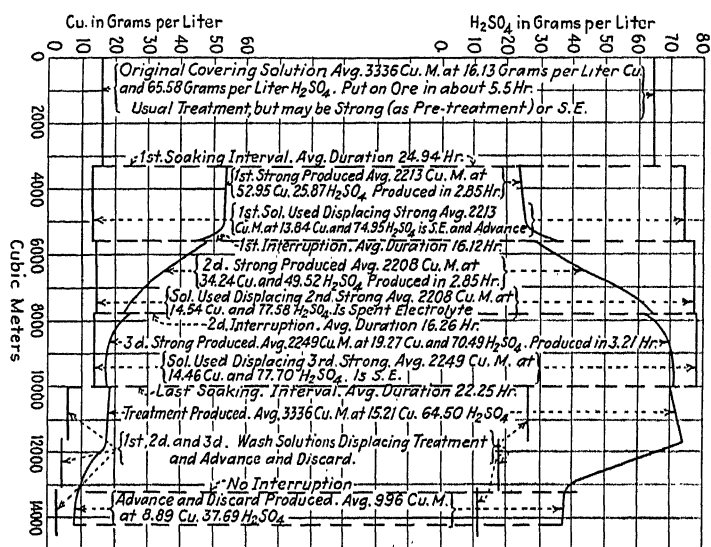 Cu. in Grams per Liter
H₂SO₄ in Grams per Liter
0 10 20 30 40 50 60 0 10 20 30 40 50 60 70 80
Original Covering Solution Avg. 3336 Cu. M. at 16.13 Grams per Liter Cu.
and 65.58 Grams per Liter H₂SO₄. Put on Ore in about 5.5 Hr.
Usual Treatment, but may be Strong (as Pre-treatment) or S.E.
1st. Soaking Interval. Avg. Duration 24.94 Hr.
1st. Strong Produced Avg. 2213 Cu. M. at
52.95 Cu. 25.87 H₂SO₄. Produced in 2.85 Hr.
1st. Sol. Used Displacing Strong Avg. 2213
Cu. M. at 13.84 Cu. and 74.95 H₂SO₄ is S.E. and Advance
1st. Interruption. Avg. Duration 16.12 Hr.
2d. Strong Produced Avg. 2208 Cu. M. at
34.24 Cu. and 49.52 H₂SO₄ Produced in 2.85 Hr.
Sol. Used Displacing 2nd. Strong Avg. 2208 Cu. M. at
14.54 Cu. and 77.58 H₂SO₄ Is Spent Electrolyte
2d. Interruption. Avg. Duration 16.26 Hr.
3d. Strong Produced. Avg. 2249 Cu. M. at 19.27 Cu. and 70.49 H₂SO₄. Produced in 3.21 Hr.
Sol. Used Displacing 3rd. Strong. Avg. 2249 Cu. M. at
14.46 Cu. and 77.70 H₂SO₄. Is S.E.
Last Soaking. Interval. Avg. Duration 22.25 Hr.
Treatment Produced. Avg. 3336 Cu. M. at 15.21 Cu. 64.50 H₂SO₄
1st, 2d. and 3d. Wash Solutions Displacing Treatment
and Advance and Discard.
No Interruption
Advance and Discard Produced. Avg. 996 Cu. M.
at 8.89 Cu. 37.69 H₂SO₄
Cubic Meters
0
2000
4000
6000
8000
10000
12000
14000